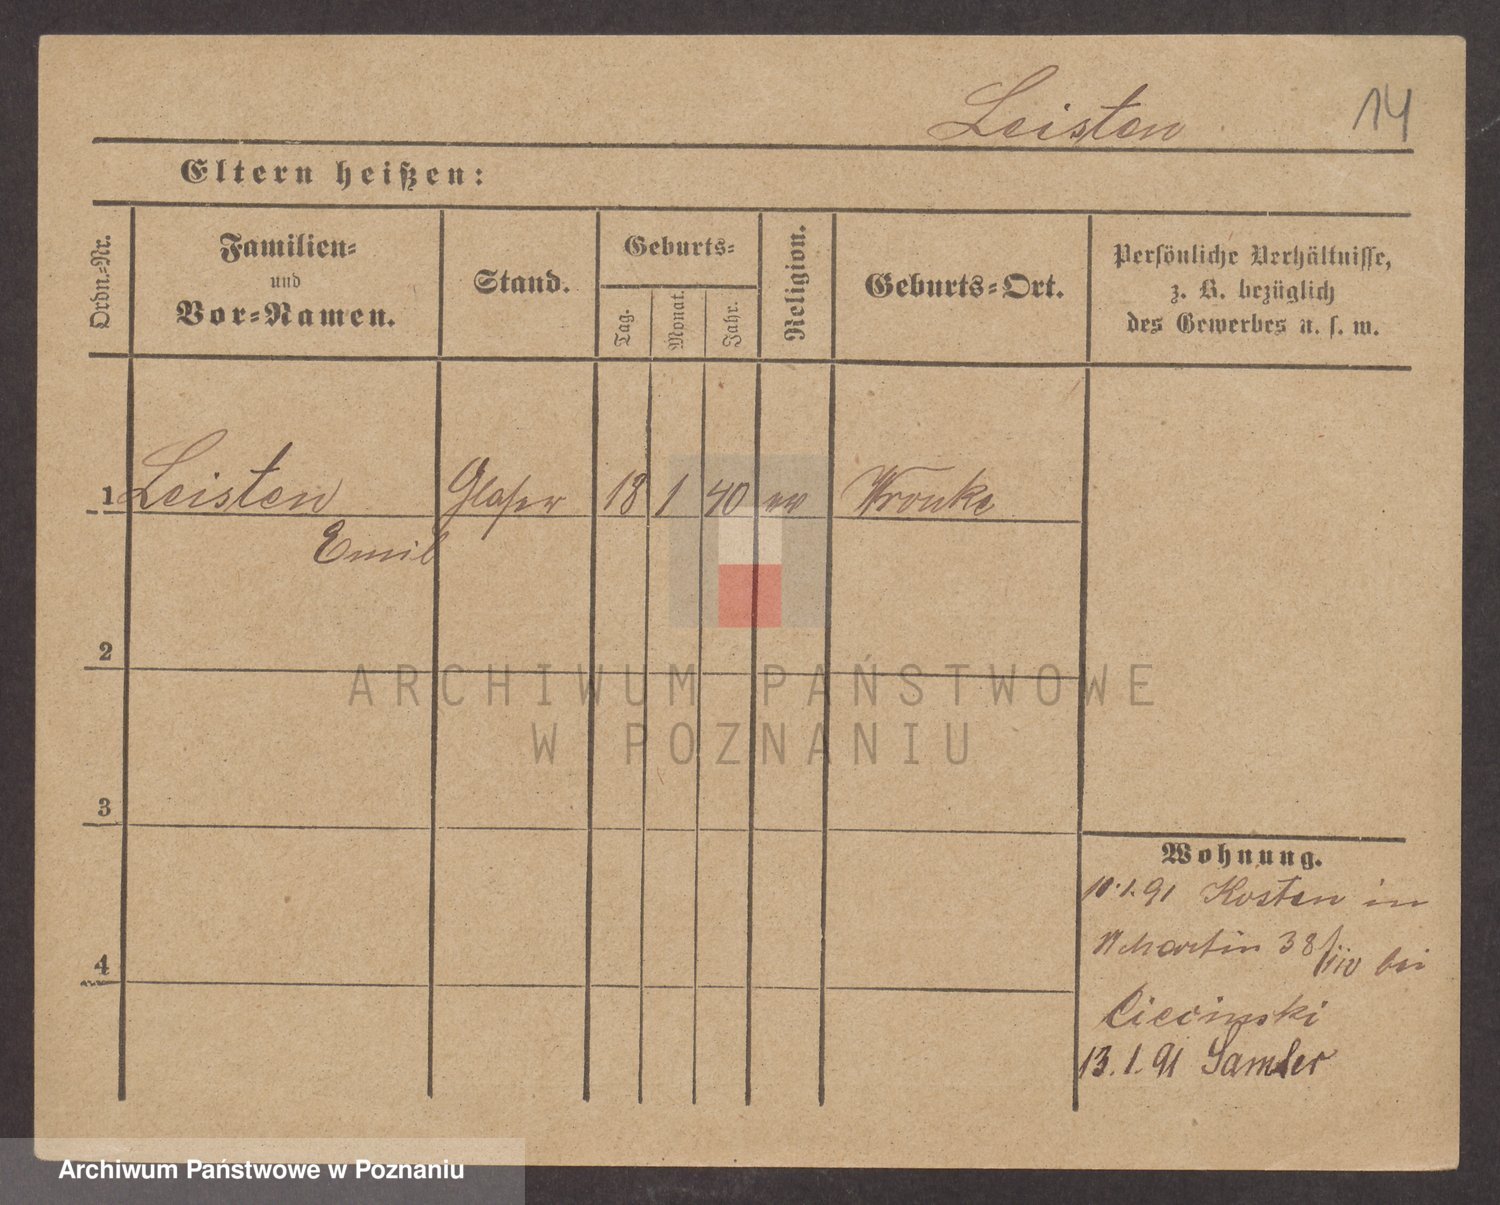 Leisten 14
Eltern heißen:
Ordn.-Nr.
Familien-
und
Vor-Namen.
Stand.
Geburts-
Tag.
Monat.
Jahr.
Religion.
Geburts-Ort.
Persönliche Verhältnisse,
z. B. bezüglich
des Gewerbes u. s. w.
1 Leisten Glaser 18 1 40 Wronke
Emil
2
3
4
Wohnung.
10.1.91 Kosten in
Martin 38 bei
Ciecinski
13.1.91 Samter
ARCHIWUM PAŃSTWOWE
W POZNANIU
Archiwum Państwowe w Poznaniu